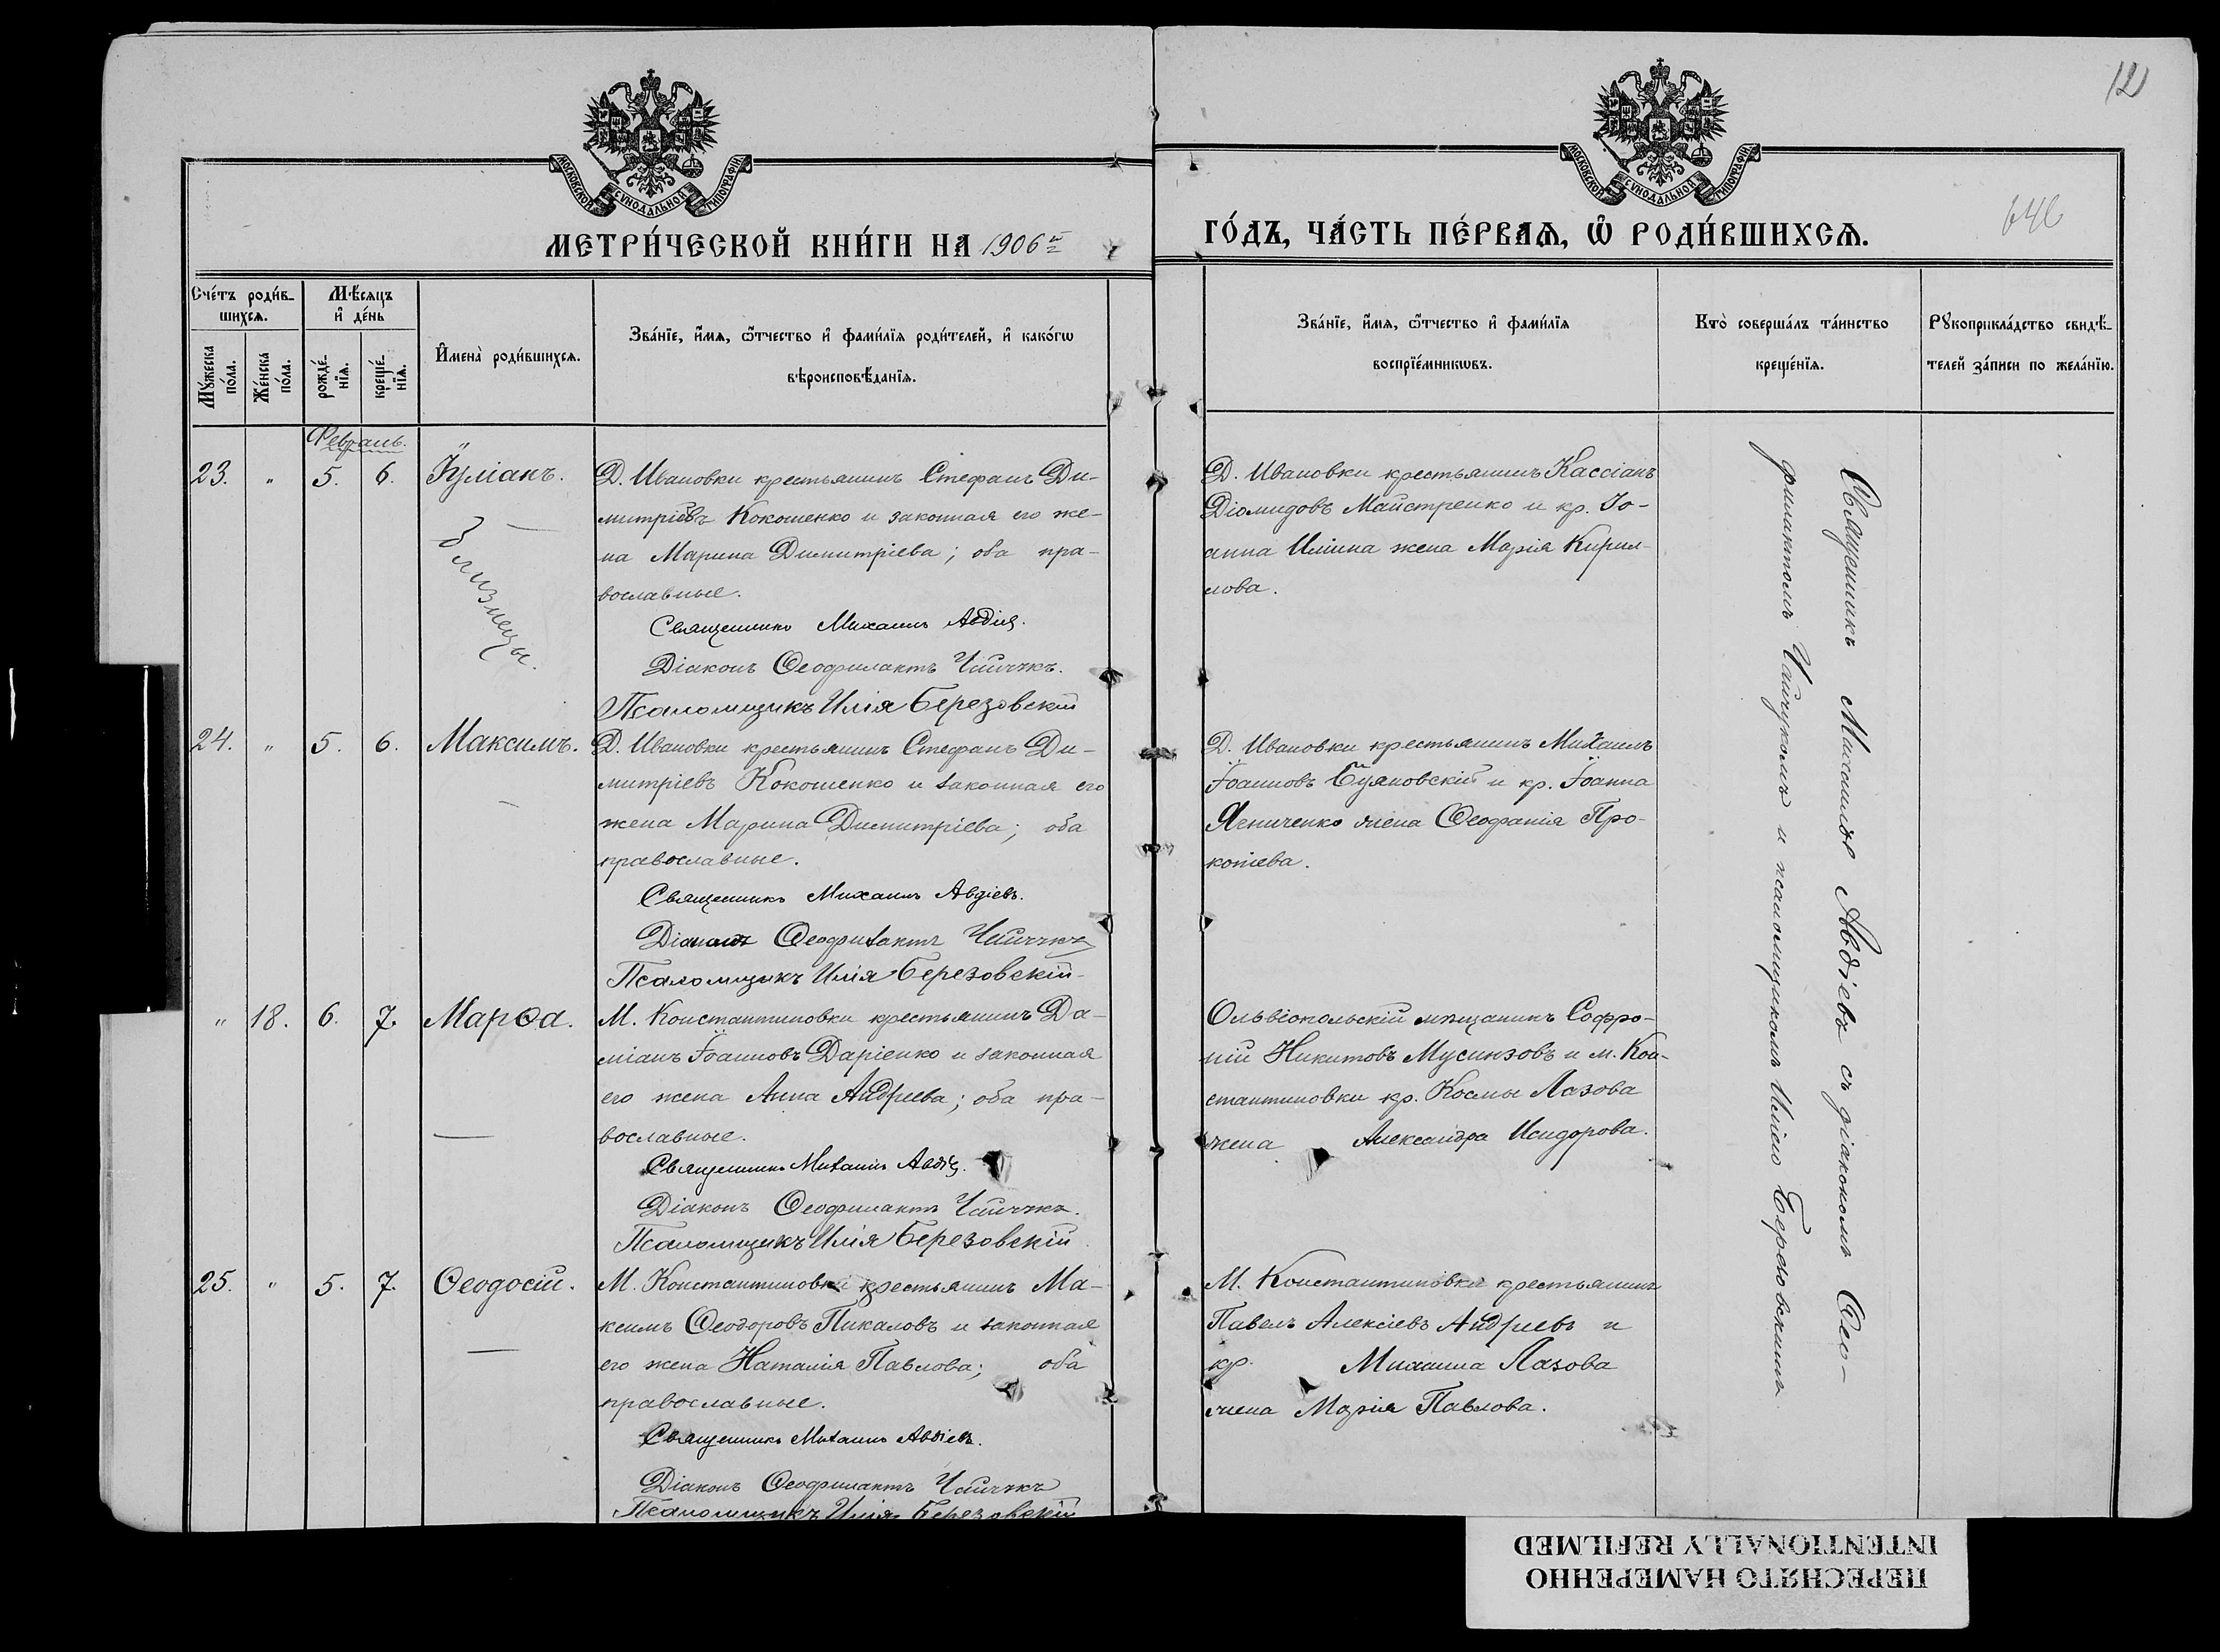 12
МОСКОВСКОЙ СѴНОДАЛЬНОЙ ТИПОГРАФІИ
МОСКОВСКОЙ СѴНОДАЛЬНОЙ ТИПОГРАФІИ
МЕТРИ́ЧЕСКОЙ КНИ́ГИ НА 1906 й
ГО́ДЪ, ЧА́СТЬ ПЕ́РВАѦ, Ѿ РОДИ́ВШИХСѦ.
Сче́тъ роди́в-
шихсѧ.
Мѣ́сяцъ
и де́нь
Мꙋ́жеска по́ла.
Же́нска по́ла.
рожде́-нїѧ.
креще́-нїѧ.
Имена̀ роди́вшихсѧ.
Зва́нїе, и́мѧ, ѻ́тчество и фами́лїѧ роди́телей, и како́гѡ
вѣроисповѣ́данїѧ.
Зва́нїе, и́мѧ, ѻ́тчество и фами́лїѧ
воспрїе́мникѡвъ.
Кто̀ соверша́лъ та́инство
креще́нїѧ.
Рꙋкоприкла́дство свидѣ́-
телей за́писи по жела́нїю.
Февраль.
23. " 5. 6. Іуліанъ.
Близнецы.
Д. Ивановки крестьянинъ Стефанъ Ди-
митріевъ Кокошенко и законная его же-
на Марина Димитріева; оба пра-
вославные.
Священникъ Михаилъ Авдіевъ.
Діаконъ Ѳеофилактъ Чайчукъ.
Псаломщикъ Илія Березовскій
Д. Ивановки крестьянинъ Кассіанъ
Діомидовъ Майстренко и кр. Іо-
анна Иліина жена Марія Кирил-
лова.
24. " 5. 6. Максимъ.
Д. Ивановки крестьянинъ Стефанъ Ди-
митріевъ Кокошенко и законная его
жена Марина Димитріева; оба
православные.
Священникъ Михаилъ Авдіевъ.
Діаконъ Ѳеофилактъ Чайчукъ
Псаломщикъ Илія Березовскій
Д. Ивановки крестьянинъ Михаилъ
Іоанновъ Буяновскій и кр. Іоанна
Ягниченко жена Ѳеофанія Про-
копіева.
" 18. 6. 7. Марѳа.
М. Константиновки крестьянинъ Да-
міанъ Іоанновъ Даріенко и законная
его жена Анна Андреева; оба пра-
вославные.
Священникъ Михаилъ Авдіевъ.
Діаконъ Ѳеофилактъ Чайчукъ.
Псаломщикъ Илія Березовскій
Ольвіопольскій мѣщанинъ Софро-
ній Никитовъ Мусинзовъ и м. Кон-
стантиновки кр. Космы Лазова
жена Александра Исидорова.
25. " 5. 7. Ѳеодосій.
М. Константиновки крестьянинъ Ма-
ксимъ Ѳеодоровъ Пикаловъ и законная
его жена Наталія Павлова; оба
православные.
Священникъ Михаилъ Авдіевъ.
Діаконъ Ѳеофилактъ Чайчукъ
Псаломщикъ Илія Березовскій
М. Константиновки крестьянинъ
Павелъ Алексіевъ Андреевъ и
кр. Михаила Лазова
жена Марія Павлова.
Священникъ Михаилъ Авдіевъ съ діакономъ Ѳео-
филактомъ Чайчукомъ и псаломщикомъ Иліею Березовскимъ
ПЕРЕСНЯТО НАМЕРЕННО
INTENTIONALLY REFILMED